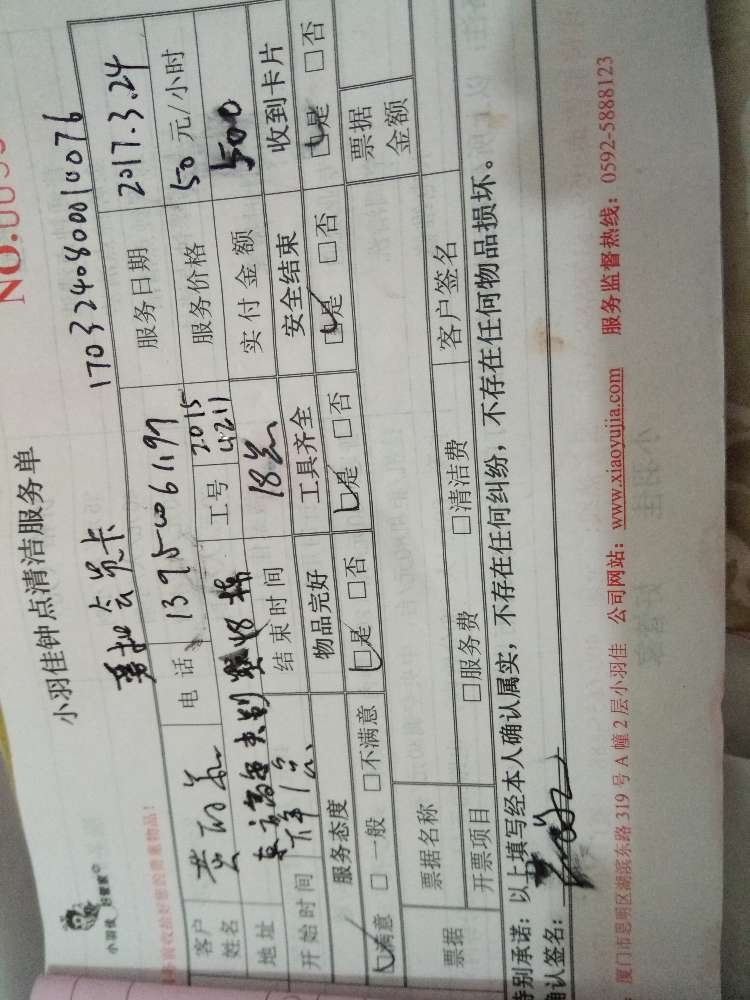 NO.
小羽佳钟点清洁服务单
1703240800010076
小羽佳 好管家
会员卡
客户姓名 黄 电话 服务日期 2017.3.24
地址 工号 20154211 服务价格 50元/小时
开始时间 下午1点 结束时间 18点 实付金额 500
服务态度 物品完好 工具齐全 安全结束 收到卡片
☑满意 □一般 □不满意 ☑是 □否 ☑是 □否 ☑是 □否 ☑是 □否
票据 票据名称 票据金额
开票项目 □服务费 □清洁费 客户签名
特别承诺:以上填写经本人确认属实,不存在任何纠纷,不存在任何物品损坏。
确认签名:
厦门市思明区湖滨东路319号A幢2层小羽佳 公司网站:www.xiaoyujia.com 服务监督热线:0592-5888123